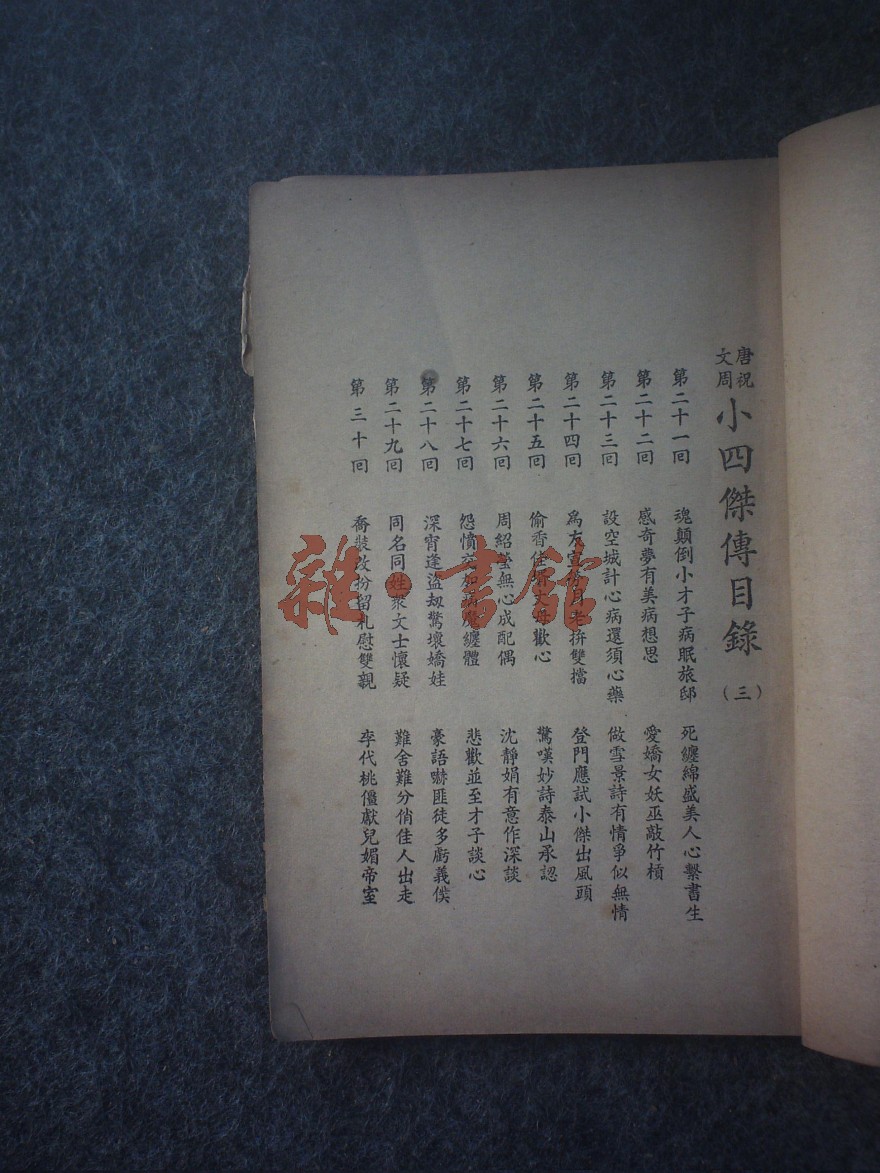 唐祝文周小四傑傳目錄(三)
第二十一回 魂顛倒小才子病眠旅邸 死纏綿盛美人心繫書生
第二十二回 感奇夢有美病想思 愛嬌女妖巫敲竹槓
第二十三回 設空城計心病還須心藥 做雪景詩有情爭似無情
第二十四回 爲友宣勞月老拚雙擋 登門應試小傑出風頭
第二十五回 偷香佳婿大母歡心 驚嘆妙詩泰山承認
第二十六回 周紹瑩無心成配偶 沈靜娟有意作深談
第二十七回 怨憤交加病魔纏體 悲歡並至才子談心
第二十八回 深宵逢盜刼驚壞嬌娃 豪語嚇匪徒多虧義僕
第二十九回 同名同姓衆文士懷疑 難舍難分俏佳人出走
第三十回 喬裝改扮留札慰雙親 李代桃僵獻兒媚帝室
雜·書館